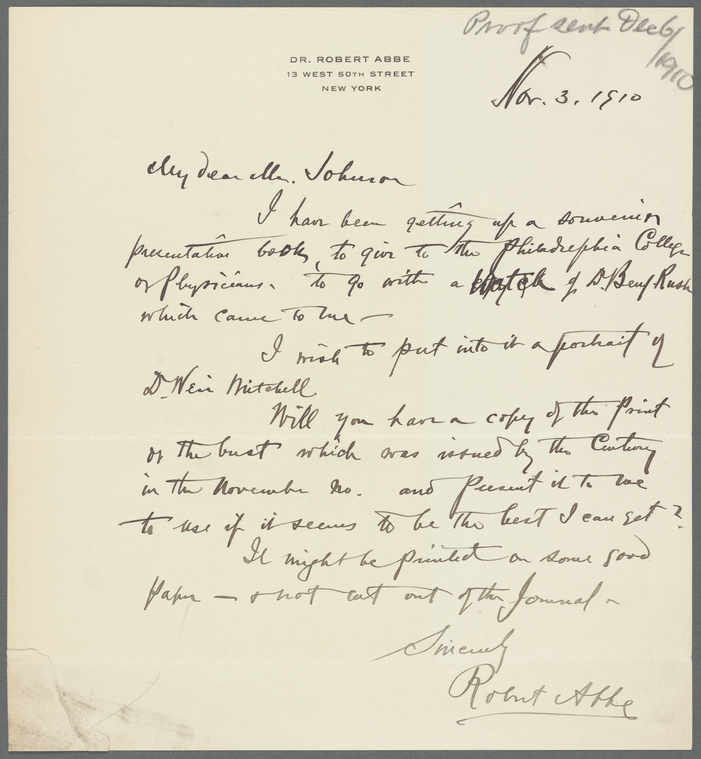 Proof sent Dec 6/
1910
DR. ROBERT ABBE
13 WEST 50TH STREET
NEW YORK
Nov. 3. 1910
My dear Mr. Johnson
I have been getting up a souvenir
presentation book, to give to the Philadelphia College
of Physicians. to go with a watch of Dr. Benj Rush
which came to me —
I wish to put into it a portrait of
Dr. Weir Mitchell
Will you have a copy of the Print
of the bust which was issued by the Century
in the November no. and present it to me
to use if it seems to be the best I can get?
It might be printed on some good
paper — & not cut out of the Journal -
Sincerely
Robert Abbe